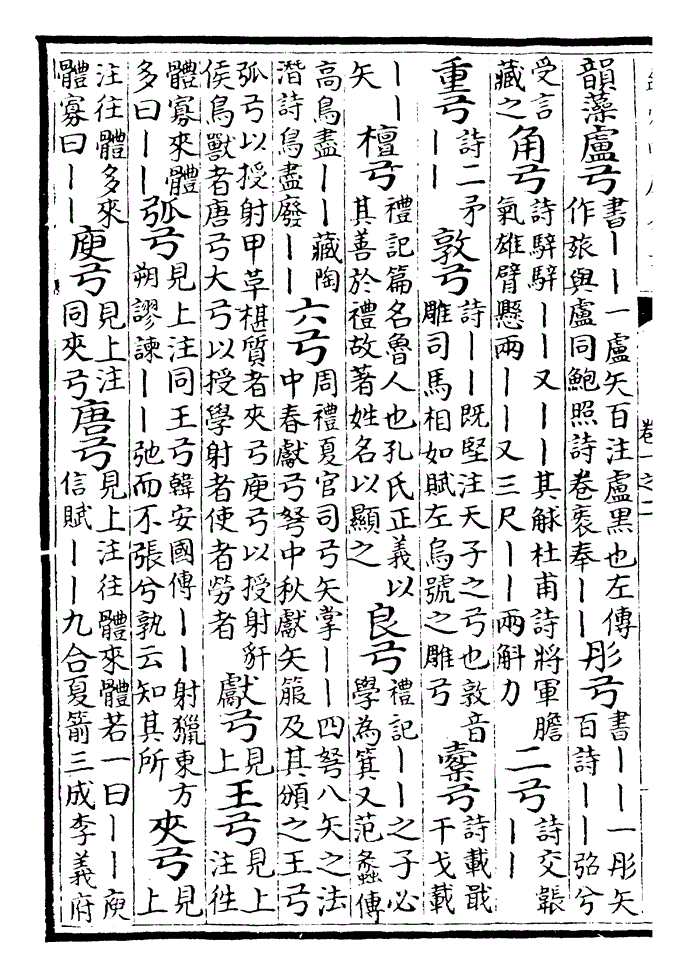 韻藻盧弓書丨丨一盧矢百注盧黑也左傳作玈與盧同鮑照詩卷袠奉丨丨彤弓書丨丨一彤矢百詩丨丨弨兮
受言藏之角弓詩騂騂丨丨又丨丨其觩杜甫詩將軍膽氣雄臂懸兩丨丨又三尺丨丨兩斛力二弓詩交韔丨丨
重弓詩二矛丨丨敦弓詩丨丨既堅注天子之弓也敦音雕司馬相如賦左烏號之雕弓櫜弓詩載戢干戈載
丨丨矢檀弓禮記篇名魯人也孔氏正義以其善於禮故著姓名以顯之良弓禮記丨丨之子必學為箕又范蠡傳
高鳥盡丨丨藏陶潛詩鳥盡廢丨丨六弓周禮夏官司弓矢掌丨丨四弩八矢之法中春獻弓弩中秋獻矢箙及其頒之王弓
弧弓以授射甲草椹質者夾弓庾弓以授射豻侯鳥獸者唐弓大弓以授學射者使者勞者獻弓見上王弓見上注往
體寡來體多曰丨丨弧弓見上注同王弓韓安國傳丨丨射獵東方朔謬諫丨丨弛而不張兮孰云知其所夾弓見上
注往體多來體寡曰丨丨庾弓見上注同夾弓唐弓見上注往體來體若一曰丨丨庾信賦丨丨九合夏箭三成李義府